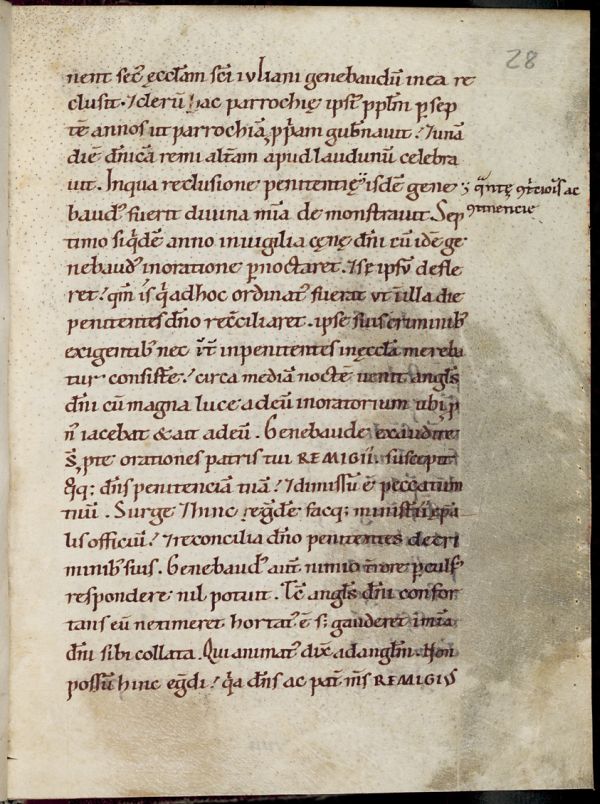 28
nent sec̄ ęccl̄am sc̄i iuliani genebaudū in ea re
clusit. ⁊ cleru hac parrochię ipse ꝑ sep
tē annos ut parrochiā ꝓpam gub̄nauit. ⁊ unā
diē dn̄icā remi alt̄am apud laudunū celebra
uit. In qua reclusione penitentię isdē gene
ꝗntę ꝯt̄ciois ac
ꝯtinencie
baud᷒ fuerit diuina mīa demonstrauit. Sep
timo siq̇dē anno in uigilia cęnę dn̄i cū idē ge
nebaud᷒ in oratione ꝑnoctaret. ⁊ seipsū defle
ret. qm̄ is q̇ adhoc ordinat᷒ fuerat ut in illa die
penitentes dn̄o reconciliaret. ipse suis criminib᷒
exigentib᷒ nec int̄ penitentes in ęccl̄a mereba
tur consist̄e. circa mediā noctē uenit angl̄s
dn̄i cū magna luce ad eū in oratorium ubi ꝓ
n᷒ iacebat & ait ad eū. Genebaude exaudite
s̄ ꝓ te orationes patris tui REMIGII. suscepit
q̇ꝗ; dn̄s penitenciā tuā. ⁊ dimissū ē peccatum
tuū. Surge ⁊ hinc egr̄de facq; minist̄iū epa
lis officiū. ⁊ reconcilia dn̄o penitentes de cri
minib᷒ suis. Genebaud᷒ aut̄ nimio t̄rore ꝑculs᷒
respondere nil potuit. Tc̄ angl̄s dn̄i confor
tans eū ne timeret hortat᷒ ē s; gauderet in mīa
dn̄i sibi collata. Qui animat᷒ dix̄ ad angl̄m. Non
possū hinc egr̄di. q̇a dn̄s ac pat̄ m̄s REMIGIUS